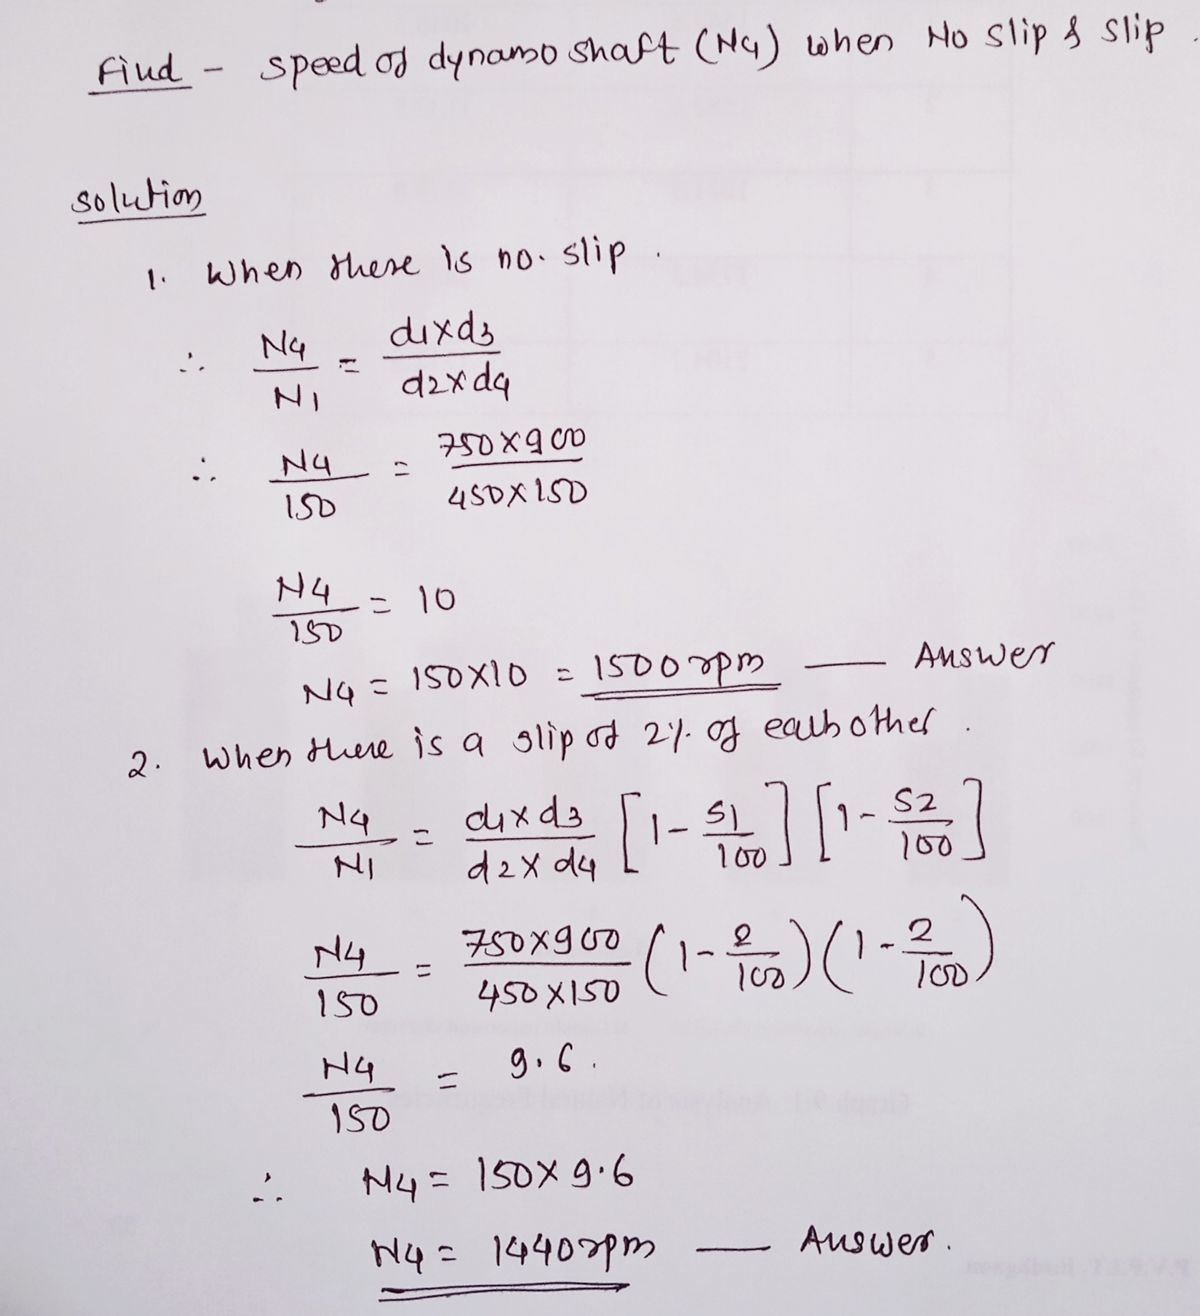 Find - speed of dynamo shaft (N4) when No slip & slip.
Solution
1. When there is no. slip.
∴ N4/N1 = d1xd3/d2xd4
∴ N4/150 = 750x900/450x150
N4/150 = 10
N4 = 150x10 = 1500rpm — Answer
2. When there is a slip of 2% of each other.
N4/N1 = d1xd3/d2xd4 [1 - S1/100] [1 - S2/100]
N4/150 = 750x900/450x150 (1 - 2/100) (1 - 2/100)
N4/150 = 9.6.
∴ N4 = 150x9.6
N4 = 1440rpm — Answer.